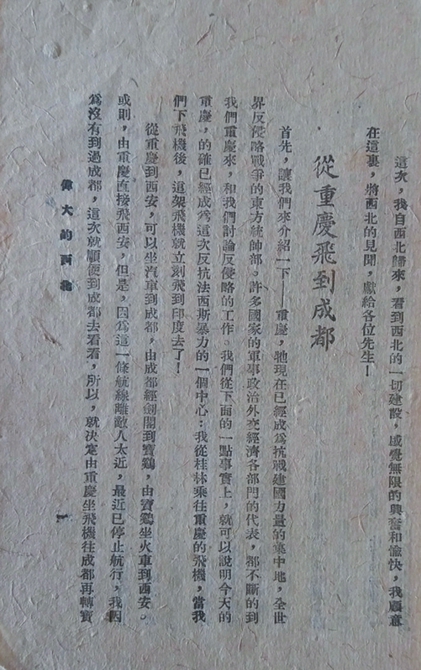 這次，我自西北歸來，看到西北的一切建設，感覺無限的興奮和愉快，我願意
在這裏，將西北的見聞，獻給各位先生！
從重慶飛到成都
首先，讓我們來介紹一下——重慶，牠現在已經成為抗戰建國力量的集中地，全世
界反侵略戰爭的東方統帥部。許多國家的軍事政治外交經濟各部門的代表，都不斷的到
我們重慶來，和我們討論反侵略的工作。我們從下面的一點事實上，就可以說明今天的
重慶，的確已經成為這次反抗法西斯暴力的一個中心：我從桂林乘往重慶的飛機，當我
們下飛機後，這架飛機就立刻飛到印度去了！
從重慶到西安，可以坐汽車到成都，由成都經劍閣到寶鷄，由寶鷄坐火車到西安。
或則，由重慶直接飛西安，但是，因為這一條航線離敵人太近，最近已停止航行，我因
為沒有到過成都，這次就順便到成都去看看，所以，就決定由重慶坐飛機往成都再轉寶
偉大的西北
一